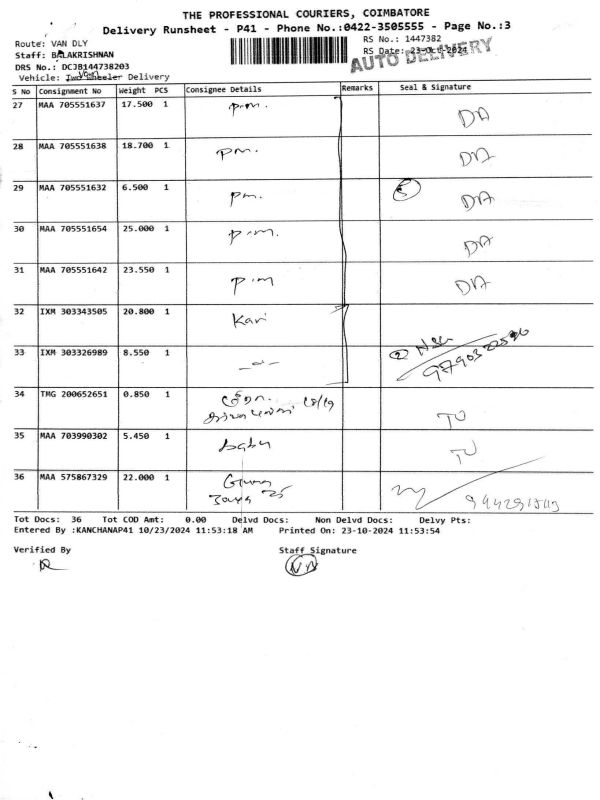 THE PROFESSIONAL COURIERS, COIMBATORE
Delivery Runsheet - P41 - Phone No.:0422-3505555 - Page No.:3
Route: VAN DLY
RS No.: 1447382
Staff: BALAKRISHNAN
RS Date: 23-Oct-2024
AUTO DELIVERY
DRS No.: DCJB144738203
Vehicle: Two Wheeler Delivery
Van
S No Consignment No Weight PCS Consignee Details Remarks Seal & Signature
27 MAA 705551637 17.500 1 p.m. DA
28 MAA 705551638 18.700 1 pm. DA
29 MAA 705551632 6.500 1 pm. 5 DA
30 MAA 705551654 25.000 1 p.m. DA
31 MAA 705551642 23.550 1 p.m DA
32 IXM 303343505 20.800 1 Kavi
33 IXM 303326989 8.550 1 2
34 TMG 200652651 0.850 1 18/19 TU
35 MAA 703990302 5.450 1 babu TU
36 MAA 575867329 22.000 1
Tot Docs: 36 Tot COD Amt: 0.00 Delvd Docs: Non Delvd Docs: Delvy Pts:
Entered By :KANCHANAP41 10/23/2024 11:53:18 AM Printed On: 23-10-2024 11:53:54
Verified By Staff Signature